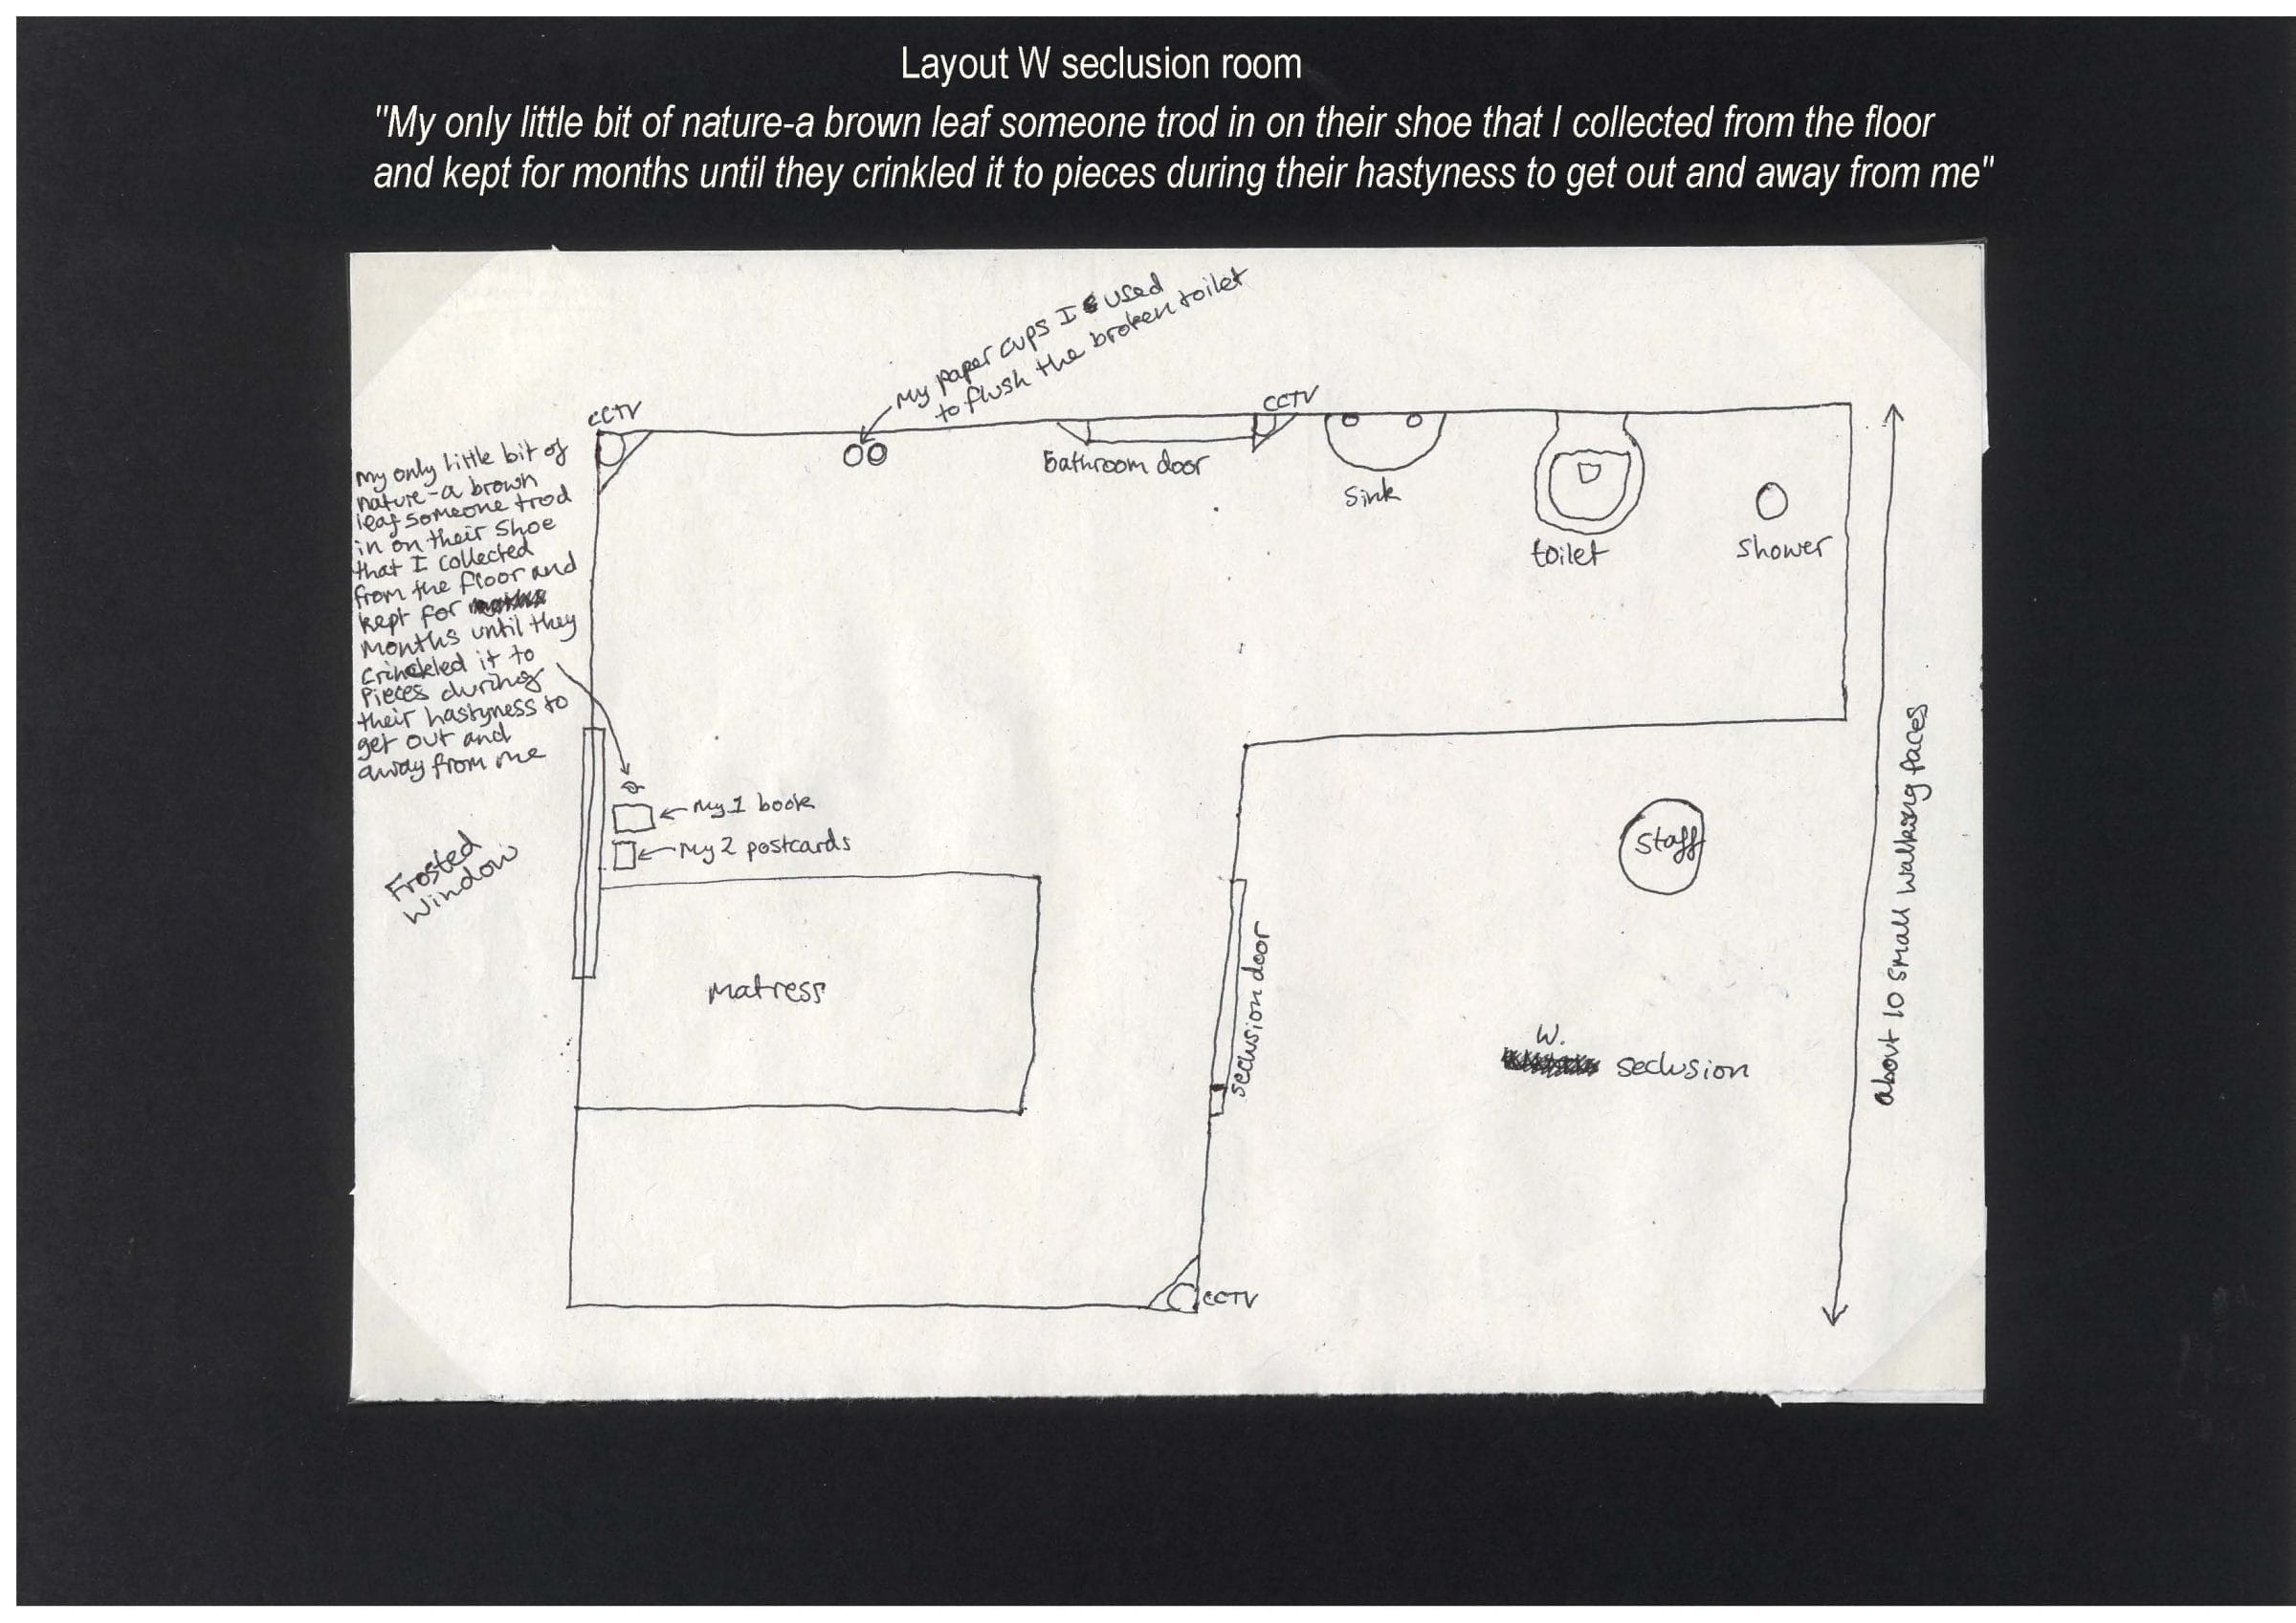 Layout W seclusion room
"My only little bit of nature-a brown leaf someone trod in on their shoe that I collected from the floor
and kept for months until they crinkled it to pieces during their hastyness to get out and away from me"
My paper cups I used
to flush the broken toilet
CCTV
CCTV
Bathroom door
Sink
toilet
shower
My only little bit of
nature-a brown
leaf someone trod
in on their shoe
that I collected
from the floor and
kept for
months until they
crinckled it to
pieces during
their hastyness to
get out and
away from me
My 1 book
My 2 postcards
Frosted
Window
Matress
seclusion door
Staff
W.
seclusion
about 10 small walking paces
CCTV